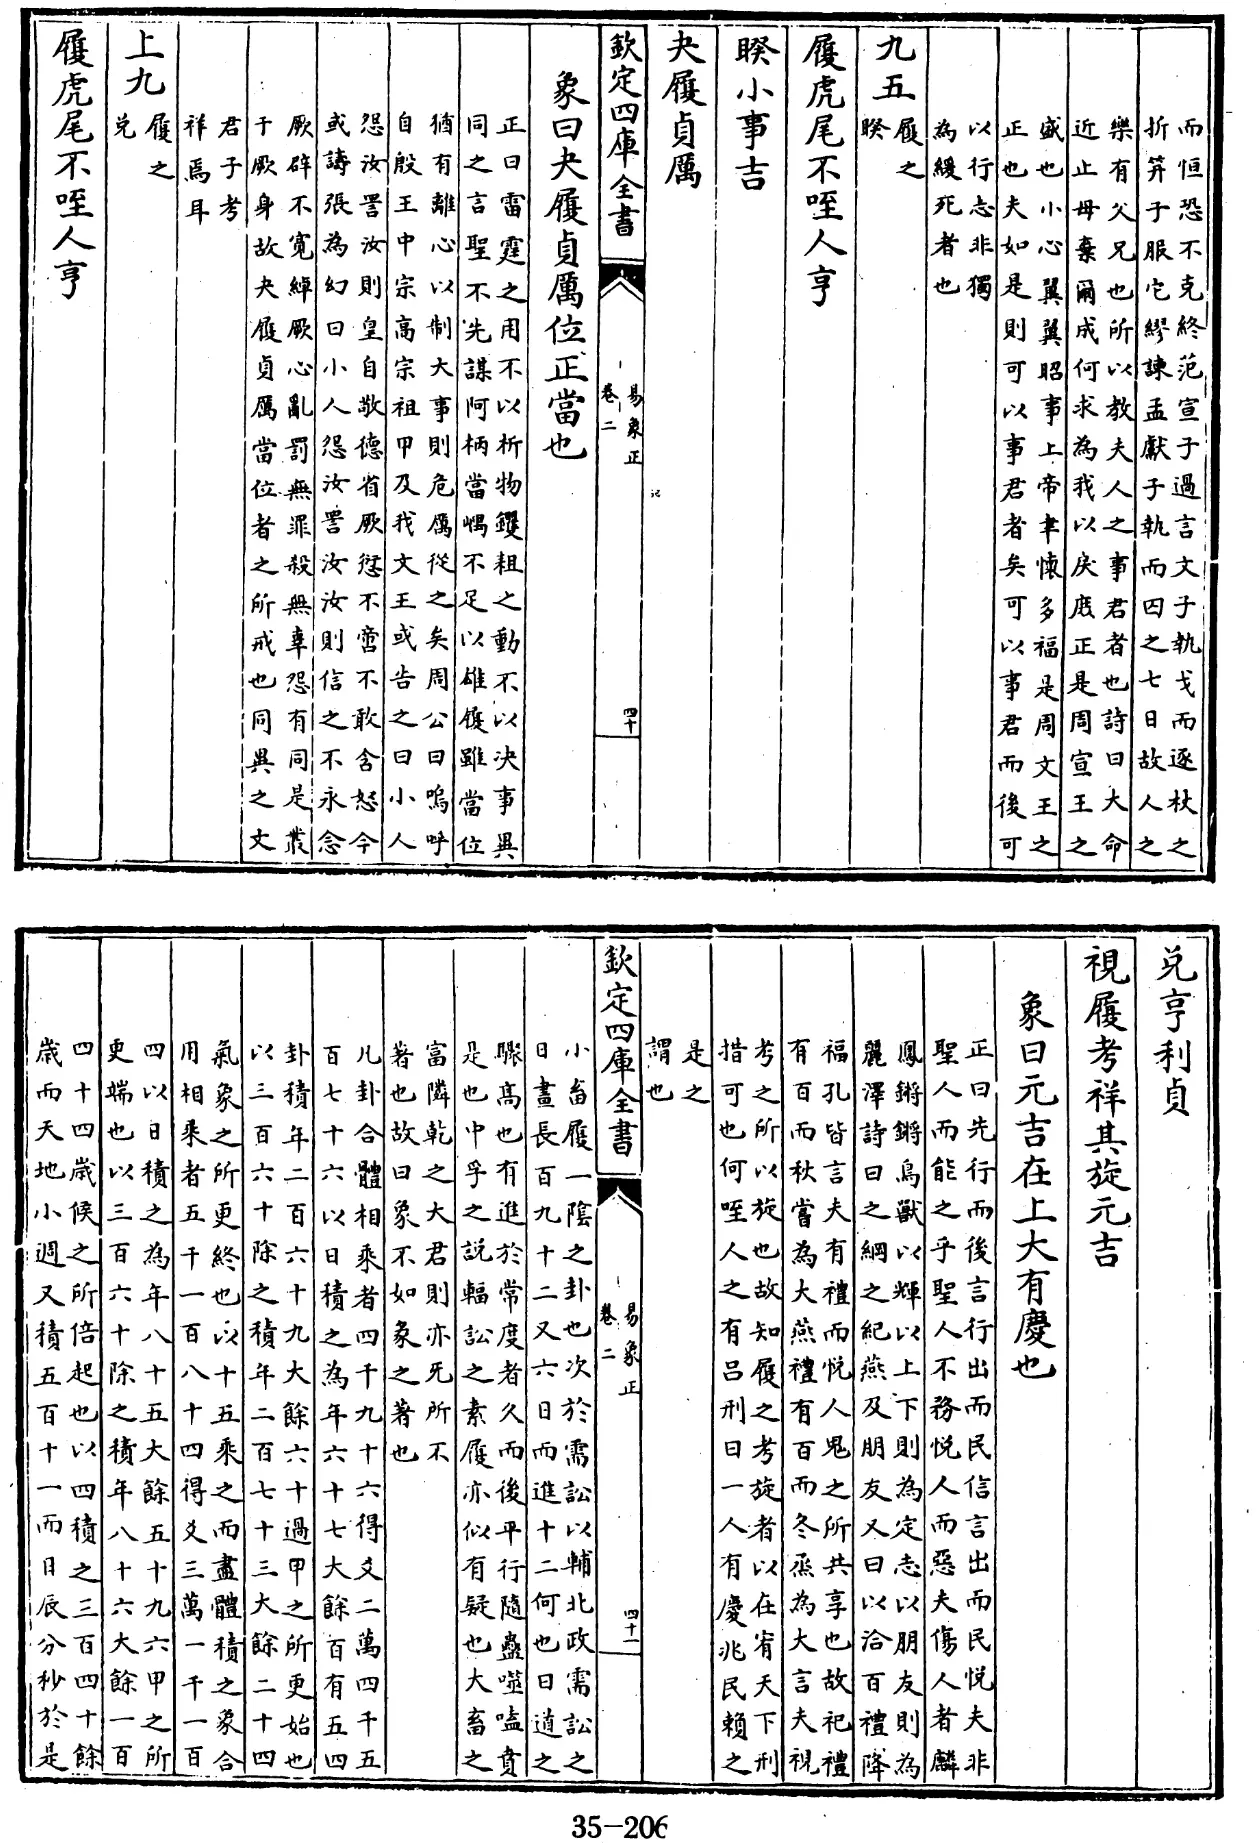 而恒恐不克終范宣子過言文子執戈而逐杖之
折筓子服它繆諫孟獻子執而囚之七日故人之
樂有父兄也所以教夫人之事君者也詩曰大命
近止毋棄爾成何求為我以戾庶正是周宣王之
盛也小心翼翼昭事上帝聿懷多福是周文王之
正也夫如是則可以事君者矣可以事君而後可
以行志非獨
為緩死者也
九五履之
睽
履虎尾不咥人亨
睽小事吉
夬履貞厲
欽定四庫全書
易象正
卷二
四十
象曰夬履貞厲位正當也
正曰雷霆之用不以析物钁耝之動不以決事異
同之言聖不先謀阿柄當嵎不足以雄履雖當位
猶有離心以制大事則危厲從之矣周公曰嗚呼
自殷王中宗高宗祖甲及我文王或告之曰小人
怨汝詈汝則皇自敬德省厥愆不啻不敢含怒今
或譸張為幻曰小人怨汝詈汝汝則信之不永念
厥辟不寬綽厥心亂罰無罪殺無辜怨有同是叢
于厥身故夬履貞厲當位者之所戒也同異之文
君子考
祥焉耳
上九履之
兌
履虎尾不咥人亨
兌亨利貞
視履考祥其旋元吉
象曰元吉在上大有慶也
正曰先行而後言行出而民信言出而民悅夫非
聖人而能之乎聖人不務悅人而惡夫傷人者麟
鳳鏘鏘鳥獸以輝以上下則為定志以朋友則為
麗澤詩曰之綱之紀燕及朋友又曰以洽百禮降
福孔皆言夫有禮而悅人鬼之所共享也故祀禮
有百而秋嘗為大燕禮有百而冬烝為大言夫視
考之所以旋也故知履之考旋者以在宥天下刑
措可也何咥人之有呂刑曰一人有慶兆民賴之
是之
謂也
欽定四庫全書
易象正
卷二
四十一
小畜履一陰之卦也次於需訟以輔北政需訟之
日晝長百九十二又六日而進十二何也曰道之
驟高也有進於常度者久而後平行隨蠱噬嗑賁
是也中孚之説輻訟之素履亦似有疑也大畜之
富隣乾之大君則亦旡所不
著也故曰象不如象之著也
凡卦合體相乘者四千九十六得爻二萬四千五
百七十六以日積之為年六十七大餘百有五四
卦積年二百六十九大餘六十過甲之所更始也
以三百六十除之積年二百七十三大餘二十四
氣象之所更終也以十五乘之而盡體積之象合
用相乘者五千一百八十四得爻三萬一千一百
四以日積之為年八十五大餘五十九六甲之所
更端也以三百六十除之積年八十六大餘一百
四十四歲候之所倍起也以四積之三百四十餘
歲而天地小週又積五百十一而日辰分秒於是
35-206